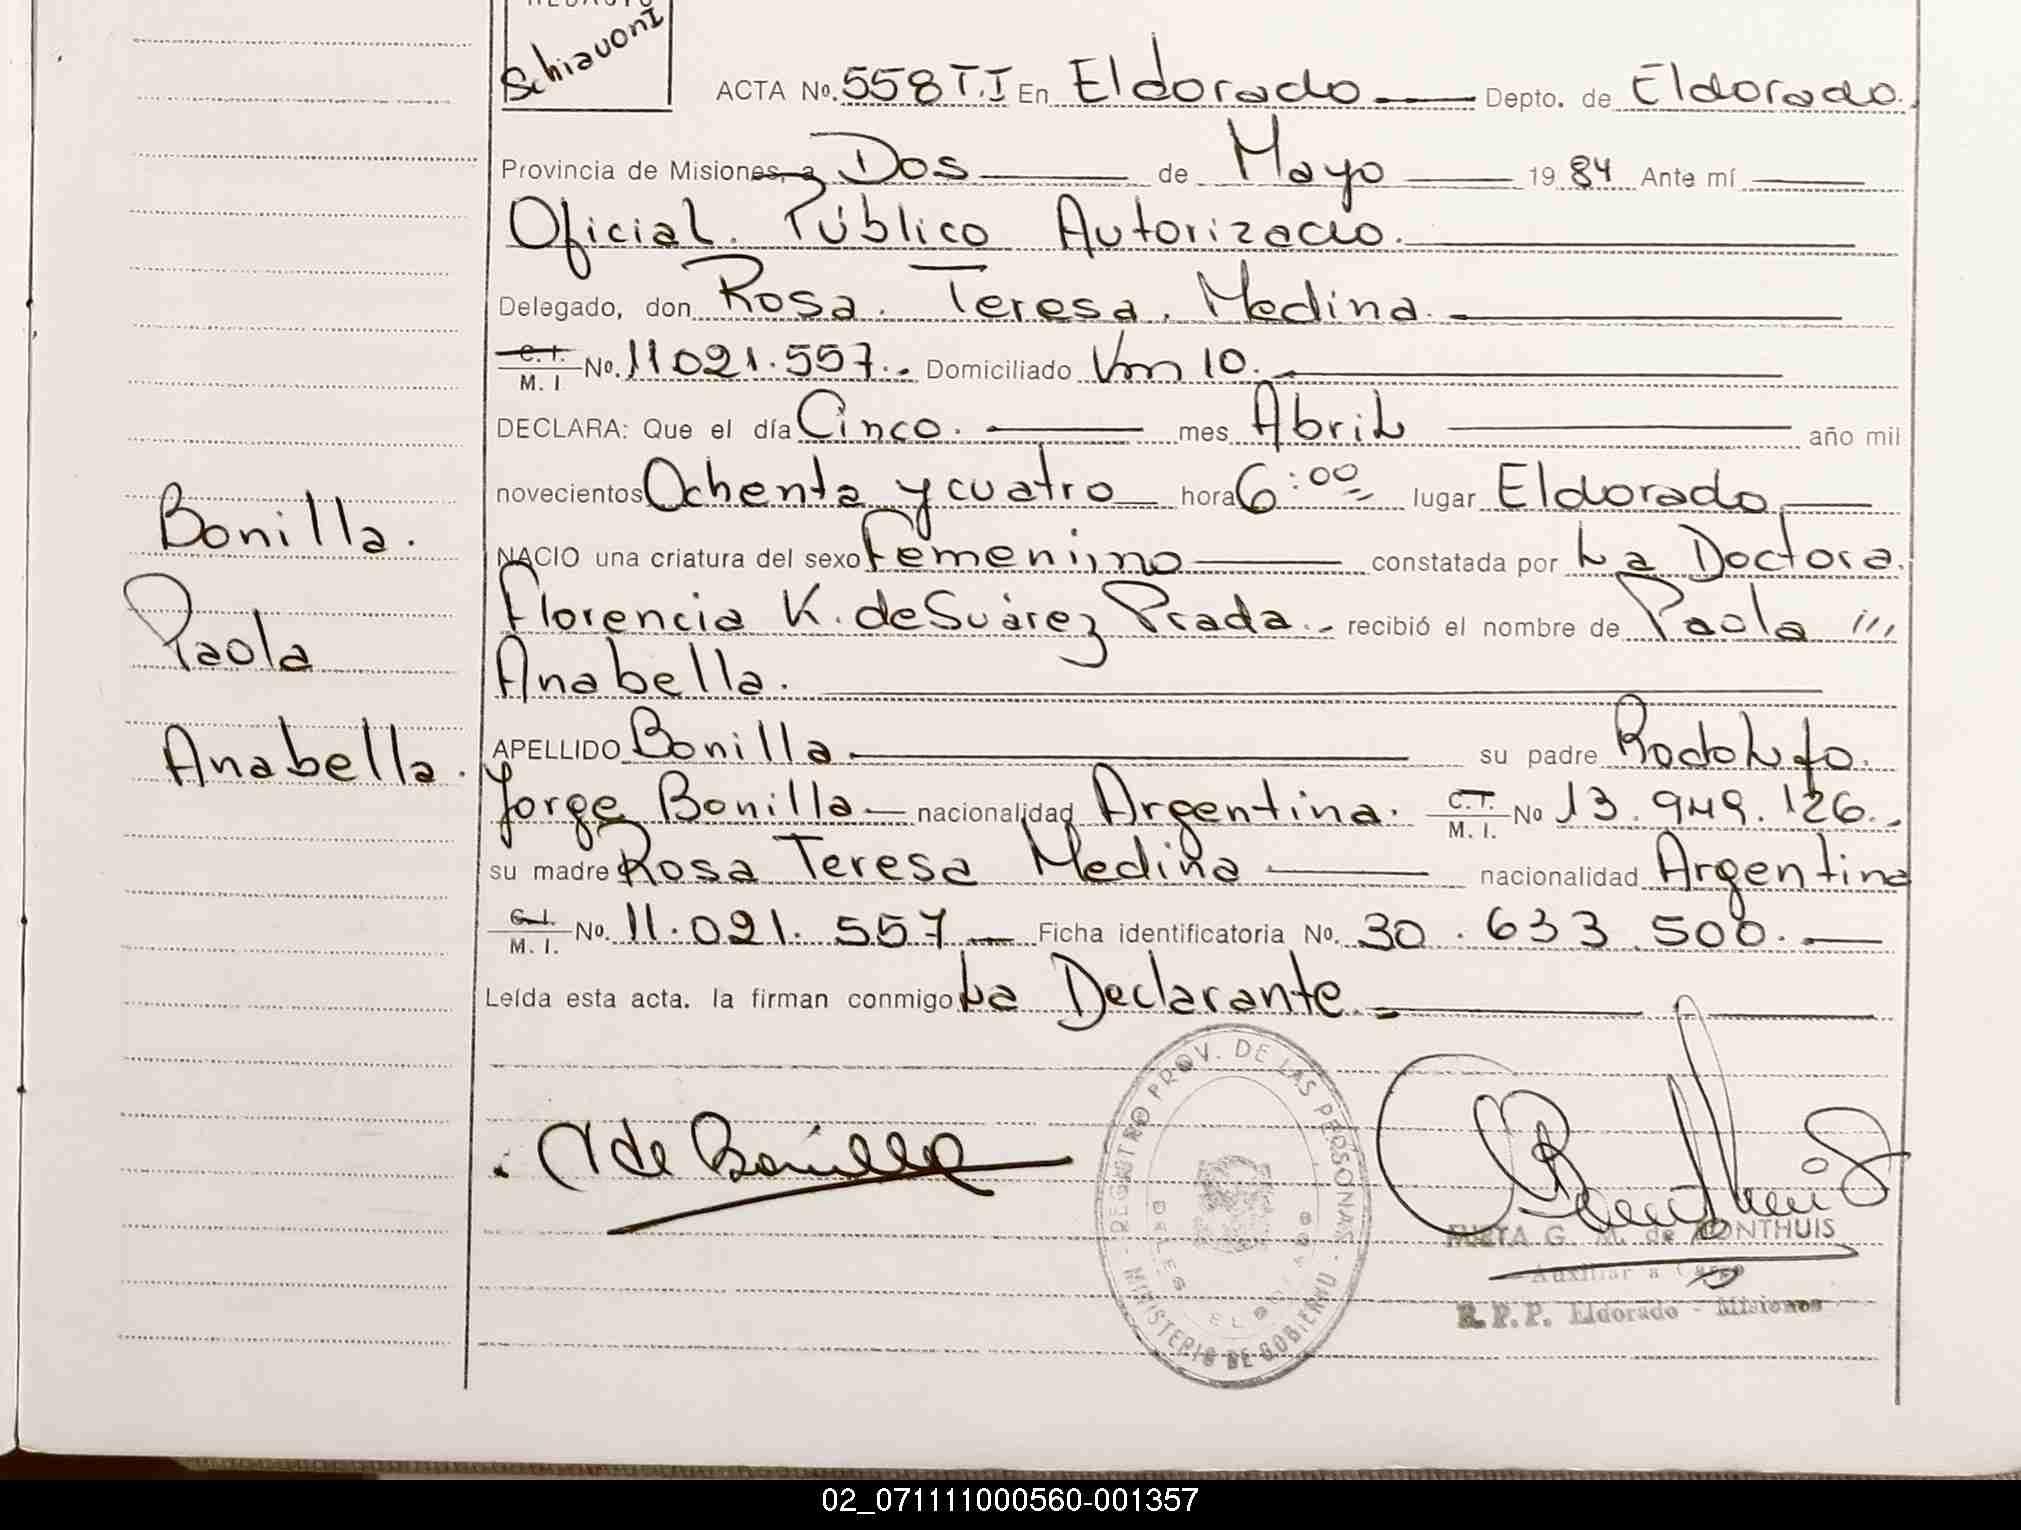 REDACTO
Schiavoni
ACTA No. 558 T.I En Eldorado Depto. de Eldorado.
Provincia de Misiones, a Dos de Mayo 1984 Ante mí
Oficial Público Autorizado.
Delegado, don Rosa Teresa Medina
C.I. M.I No. 11021.557. Domiciliado Km 10.
DECLARA: Que el día Cinco. mes Abril año mil
novecientos Ochenta y cuatro hora 6:00 lugar Eldorado
NACIO una criatura del sexo Femenino constatada por La Doctora.
Florencia K. de Suárez Prada. recibió el nombre de Paola
Anabella.
APELLIDO Bonilla su padre Rodolfo.
Jorge Bonilla nacionalidad Argentina. C.I. M.I. No 13.949.126.
su madre Rosa Teresa Medina nacionalidad Argentina
C.I. M.I. No. 11.021.557 Ficha identificatoria No. 30.633.500.
Leída esta acta. la firman conmigo La Declarante.
Bonilla.
Paola
Anabella.
de Bonilla
REGISTRO PROV. DE LAS PERSONAS - MINISTERIO DE GOBIERNO -
ELDORADO
G. M. de MONTHUIS
Auxiliar a Cargo
R.P.P. Eldorado - Misiones
02_071111000560-001357